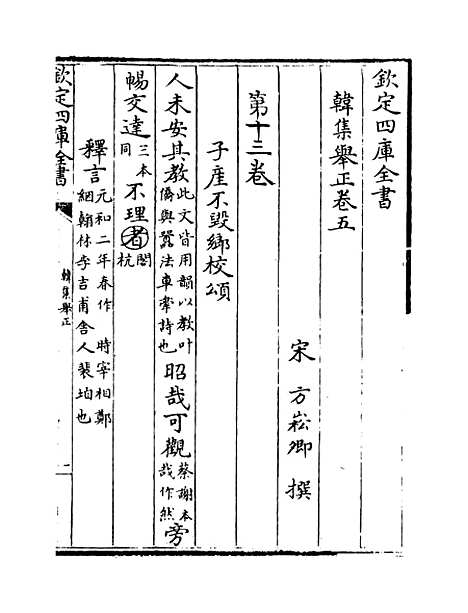 欽定四庫全書
韓集舉正卷五
宋 方崧卿 撰
第十三卷
子產不毀鄉校頌
人未安其教此文皆用韻以教叶
僑與蠶法車牽詩也昭哉可觀蔡謝本
哉作然旁
暢交達三本
同不理者閣
杭
釋言元和二年春作 時宰相鄭
絪翰林李吉甫舍人裴垍也
欽定四庫全書
韓集舉正
一